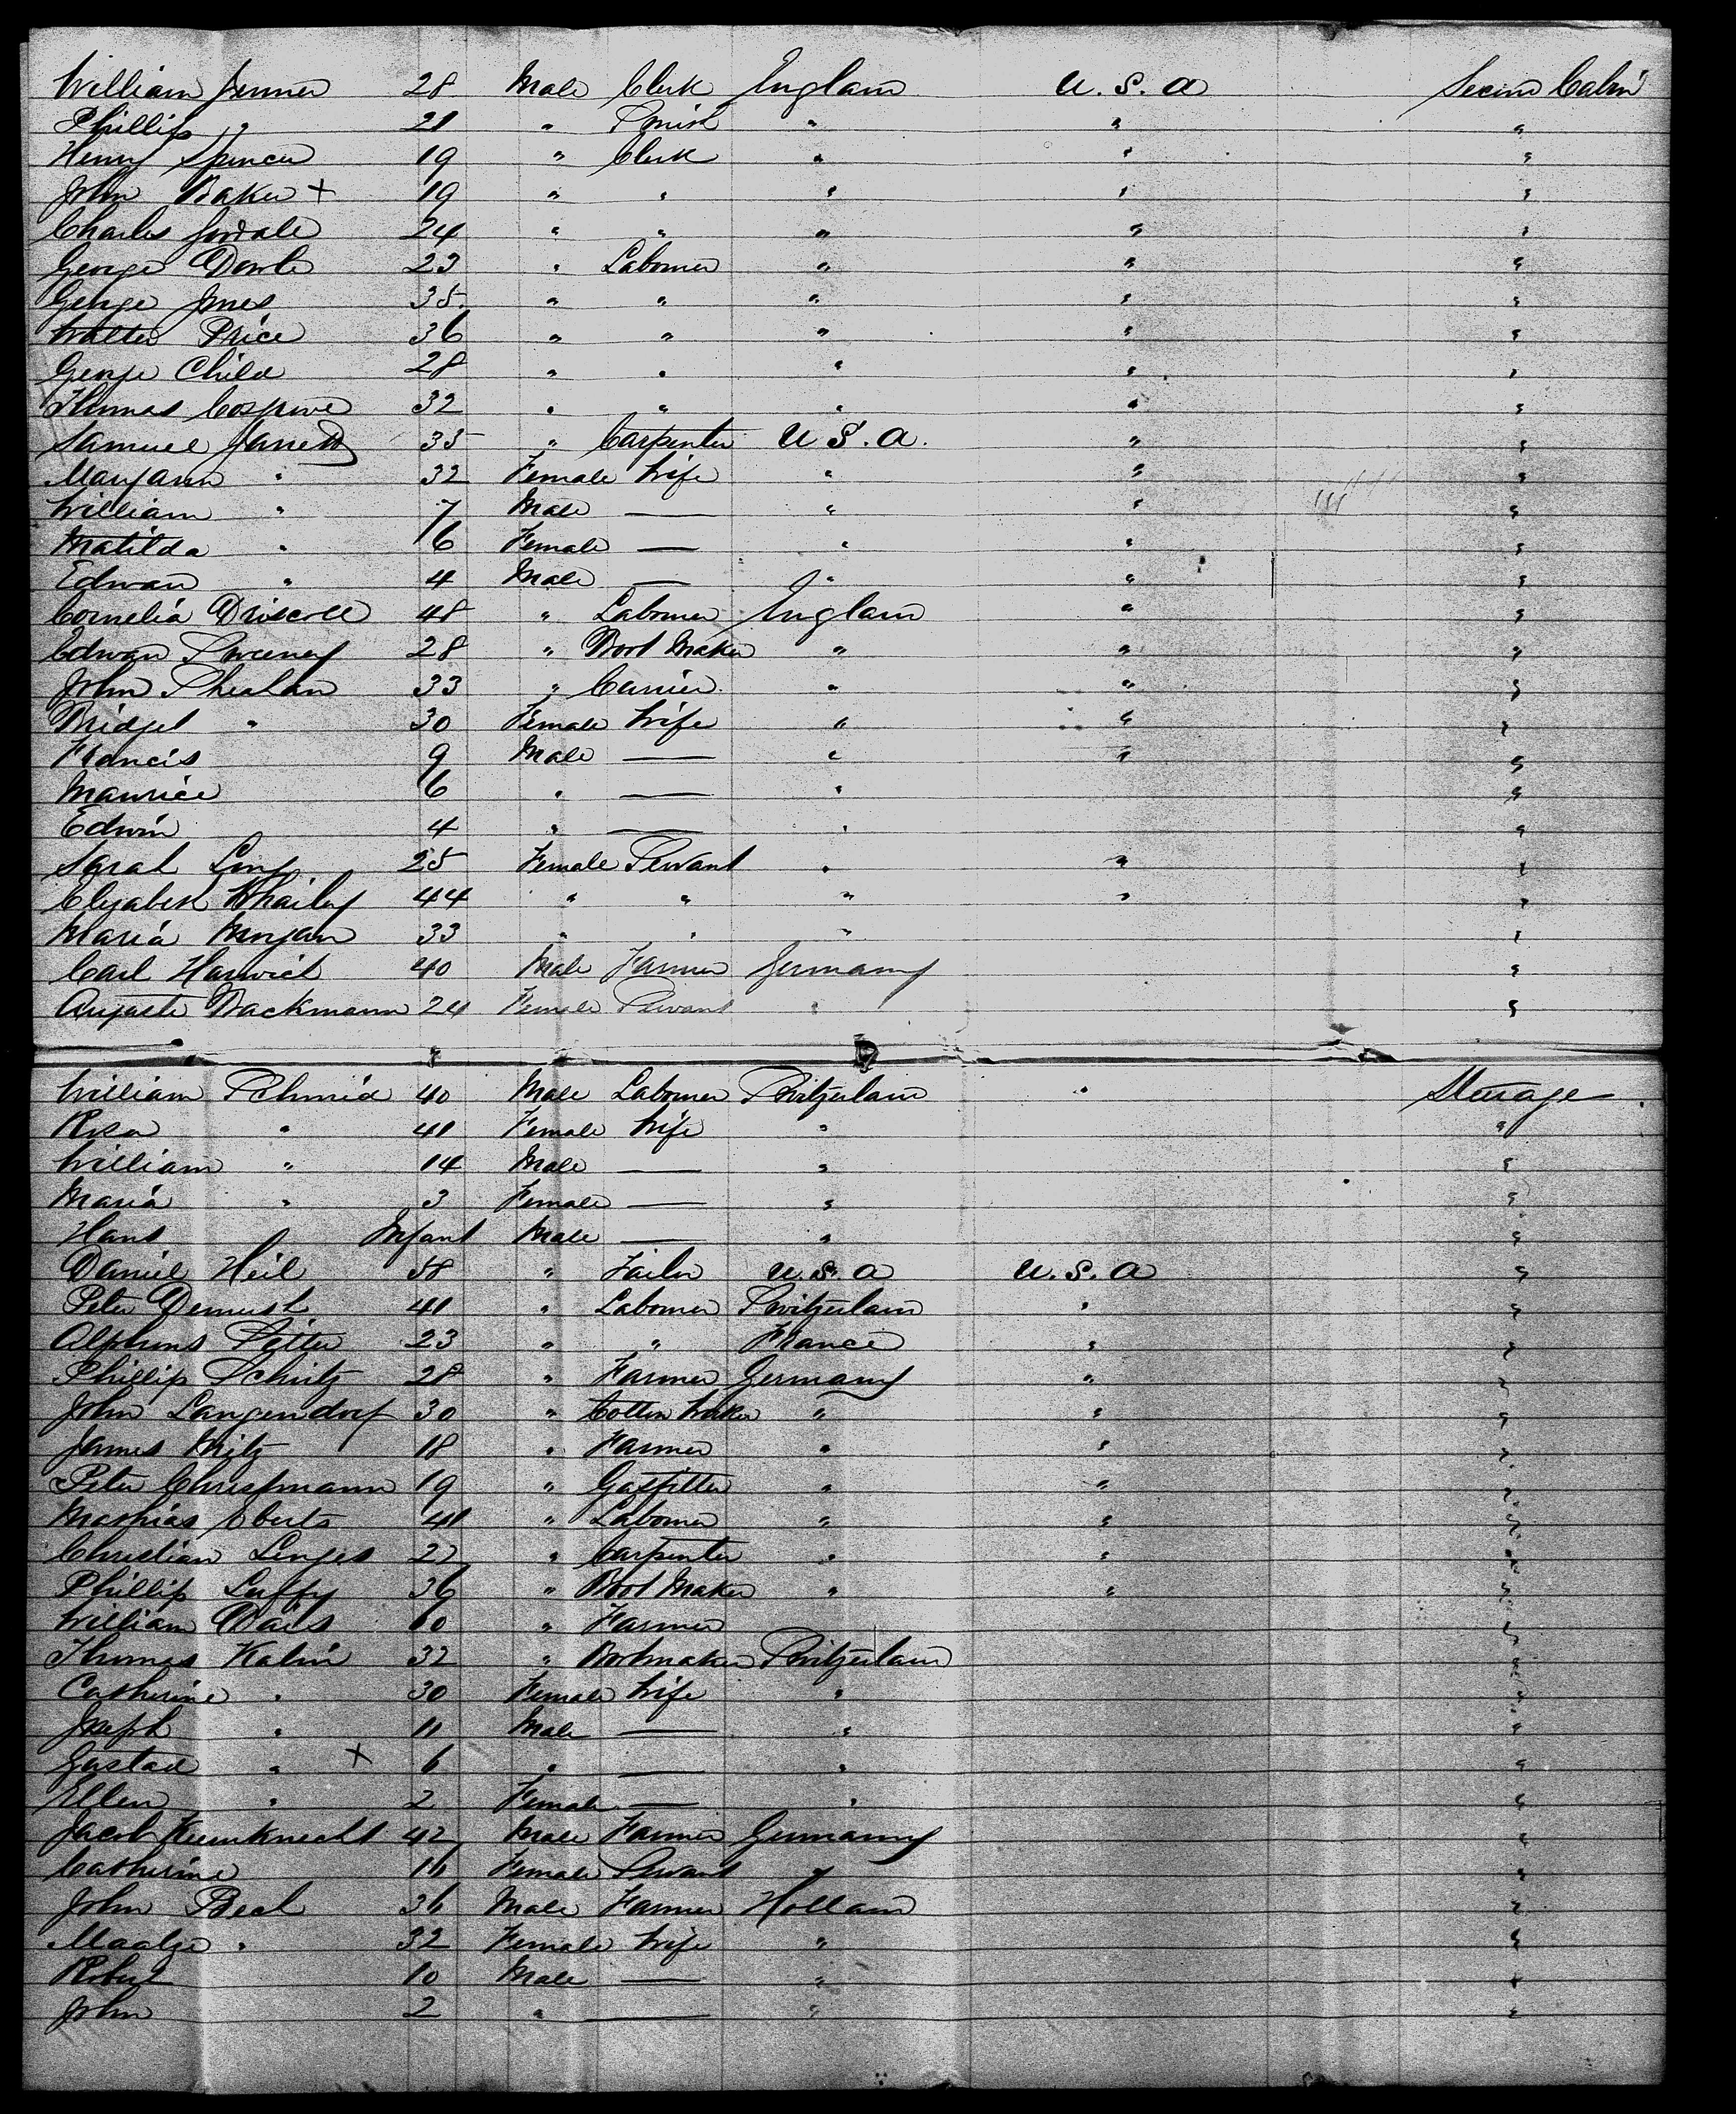 William Jenner 28 Male Clerk England U.S.A Second Cabin
Phillip " 21 " " " "
Henry Spencer 19 " Clerk " " "
John Baker + 19 " " " " "
Charles 24 " " " " "
George 23 " Labourer " " "
George Jones 35 " " " " "
Walter Price 36 " " " " "
George Child 28 " " " " "
Thomas Cosgrove 32 " " " " "
Samuel Jarrett 35 " Carpenter U.S.A. " "
Maryann " 32 Female Wife " " "
William " 7 Male — " " "
Matilda " 6 Female — " " "
Edward " 4 Male — " " "
Cornelia Driscoll 48 " Labourer England " "
Edward Sweeney 28 " Boot Maker " " "
John Phealan 33 " Carrier " " "
Bridget " 30 Female Wife " " "
Francis 9 Male — " " "
Maurice 6 " — " "
Edwin 4 " — " "
Sarah Long 25 Female Servant " " "
Elizabeth 44 " " " " "
Maria Morgan 33 " " " "
Carl Harwich 40 Male Farmer Germany "
Auguste Backmann 24 Female Servant " "
William Schmid 40 Male Labourer Switzerland " Steerage
Rosa " 41 Female Wife " "
William " 14 Male — " "
Maria " 3 Female — " "
Hans " Infant Male — " "
Daniel Heil 58 " Tailor U.S.A U.S.A "
Peter 41 " Labourer Switzerland " "
Alphons 23 " " France " "
Phillip Schutz 28 " Farmer Germany " "
John Langendorf 30 " Cotton Worker " " "
James 18 " Farmer " " "
Peter Christmann 19 " Gasfitter " " "
Mathias Eberts 41 " Labourer " " "
Christian Lenges 22 " Carpenter " " "
Phillip Luffy 36 " Boot Maker " " "
William 60 " Farmer "
Thomas Kalin 32 " Bootmaker Switzerland "
Catherine " 30 Female Wife " "
Joseph " 11 Male — " "
Gustave " + 6 " — " "
Ellen " 2 Female — " "
Jacob 42 Male Farmer Germany "
Catherine 16 Female Servant " "
John Beal 36 Male Farmer Holland "
Maatze " 32 Female Wife " "
Robert 10 Male — " "
John 2 " — " "